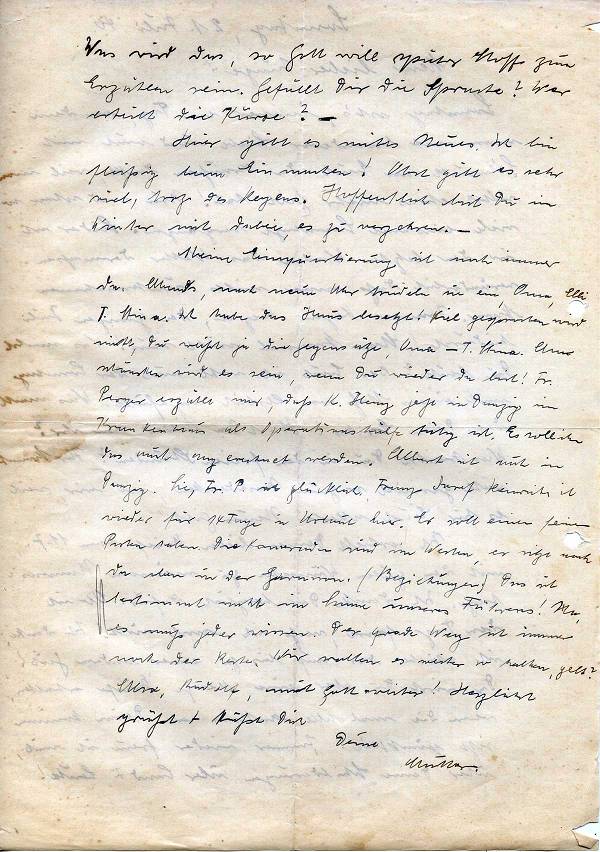 Was wird das, so Gott will später Stoff zum
Erzählen sein. Gefällt Dir die Sprache? Wer
erteilt die Kurse? —
Hier gibt es nichts Neues. Ich bin
fleißig beim Einmachen! Obst gibt es sehr
viel, trotz des Regens. Hoffentlich bist Du im
Winter mit dabei, es zu verzehren. —
Meine Einquartierung ist noch immer
da. Abends, nach neun Uhr trudeln sie ein, Oma, Elli
T. Stina. Ich habe das Haus besetzt! Viel gesprochen wird
nicht, Du weißt ja die Gegensätze, Oma – T. Stina. Am
schönsten wird es sein, wenn Du wieder da bist! Fr.
erzählt mir, daß K. Heinz jetzt in Danzig im
Krankenhaus als Operationshilfe tätig ist. Es soll ihm
das auch angerechnet werden. Albert ist auch in
Danzig. Sie, Fr. P. ist glücklich. Franz Josef Heinrichs ist
wieder für 14 Tage in Urlaub hier. Er soll einen feinen
Posten haben. Die Kameraden sind im Westen, er sitzt noch
da oben in der Garnison. (Beziehungen) Das ist
bestimmt nicht im Sinne unseres Führers! Na,
es muß jeder wissen. Der gerade Weg ist immer
noch der beste. Wir wollen es weiter so halten, gelt?
Also, Rudolf, mit Gott weiter! Herzlichst
grüßt + küßt Dich
Deine
Mutter.